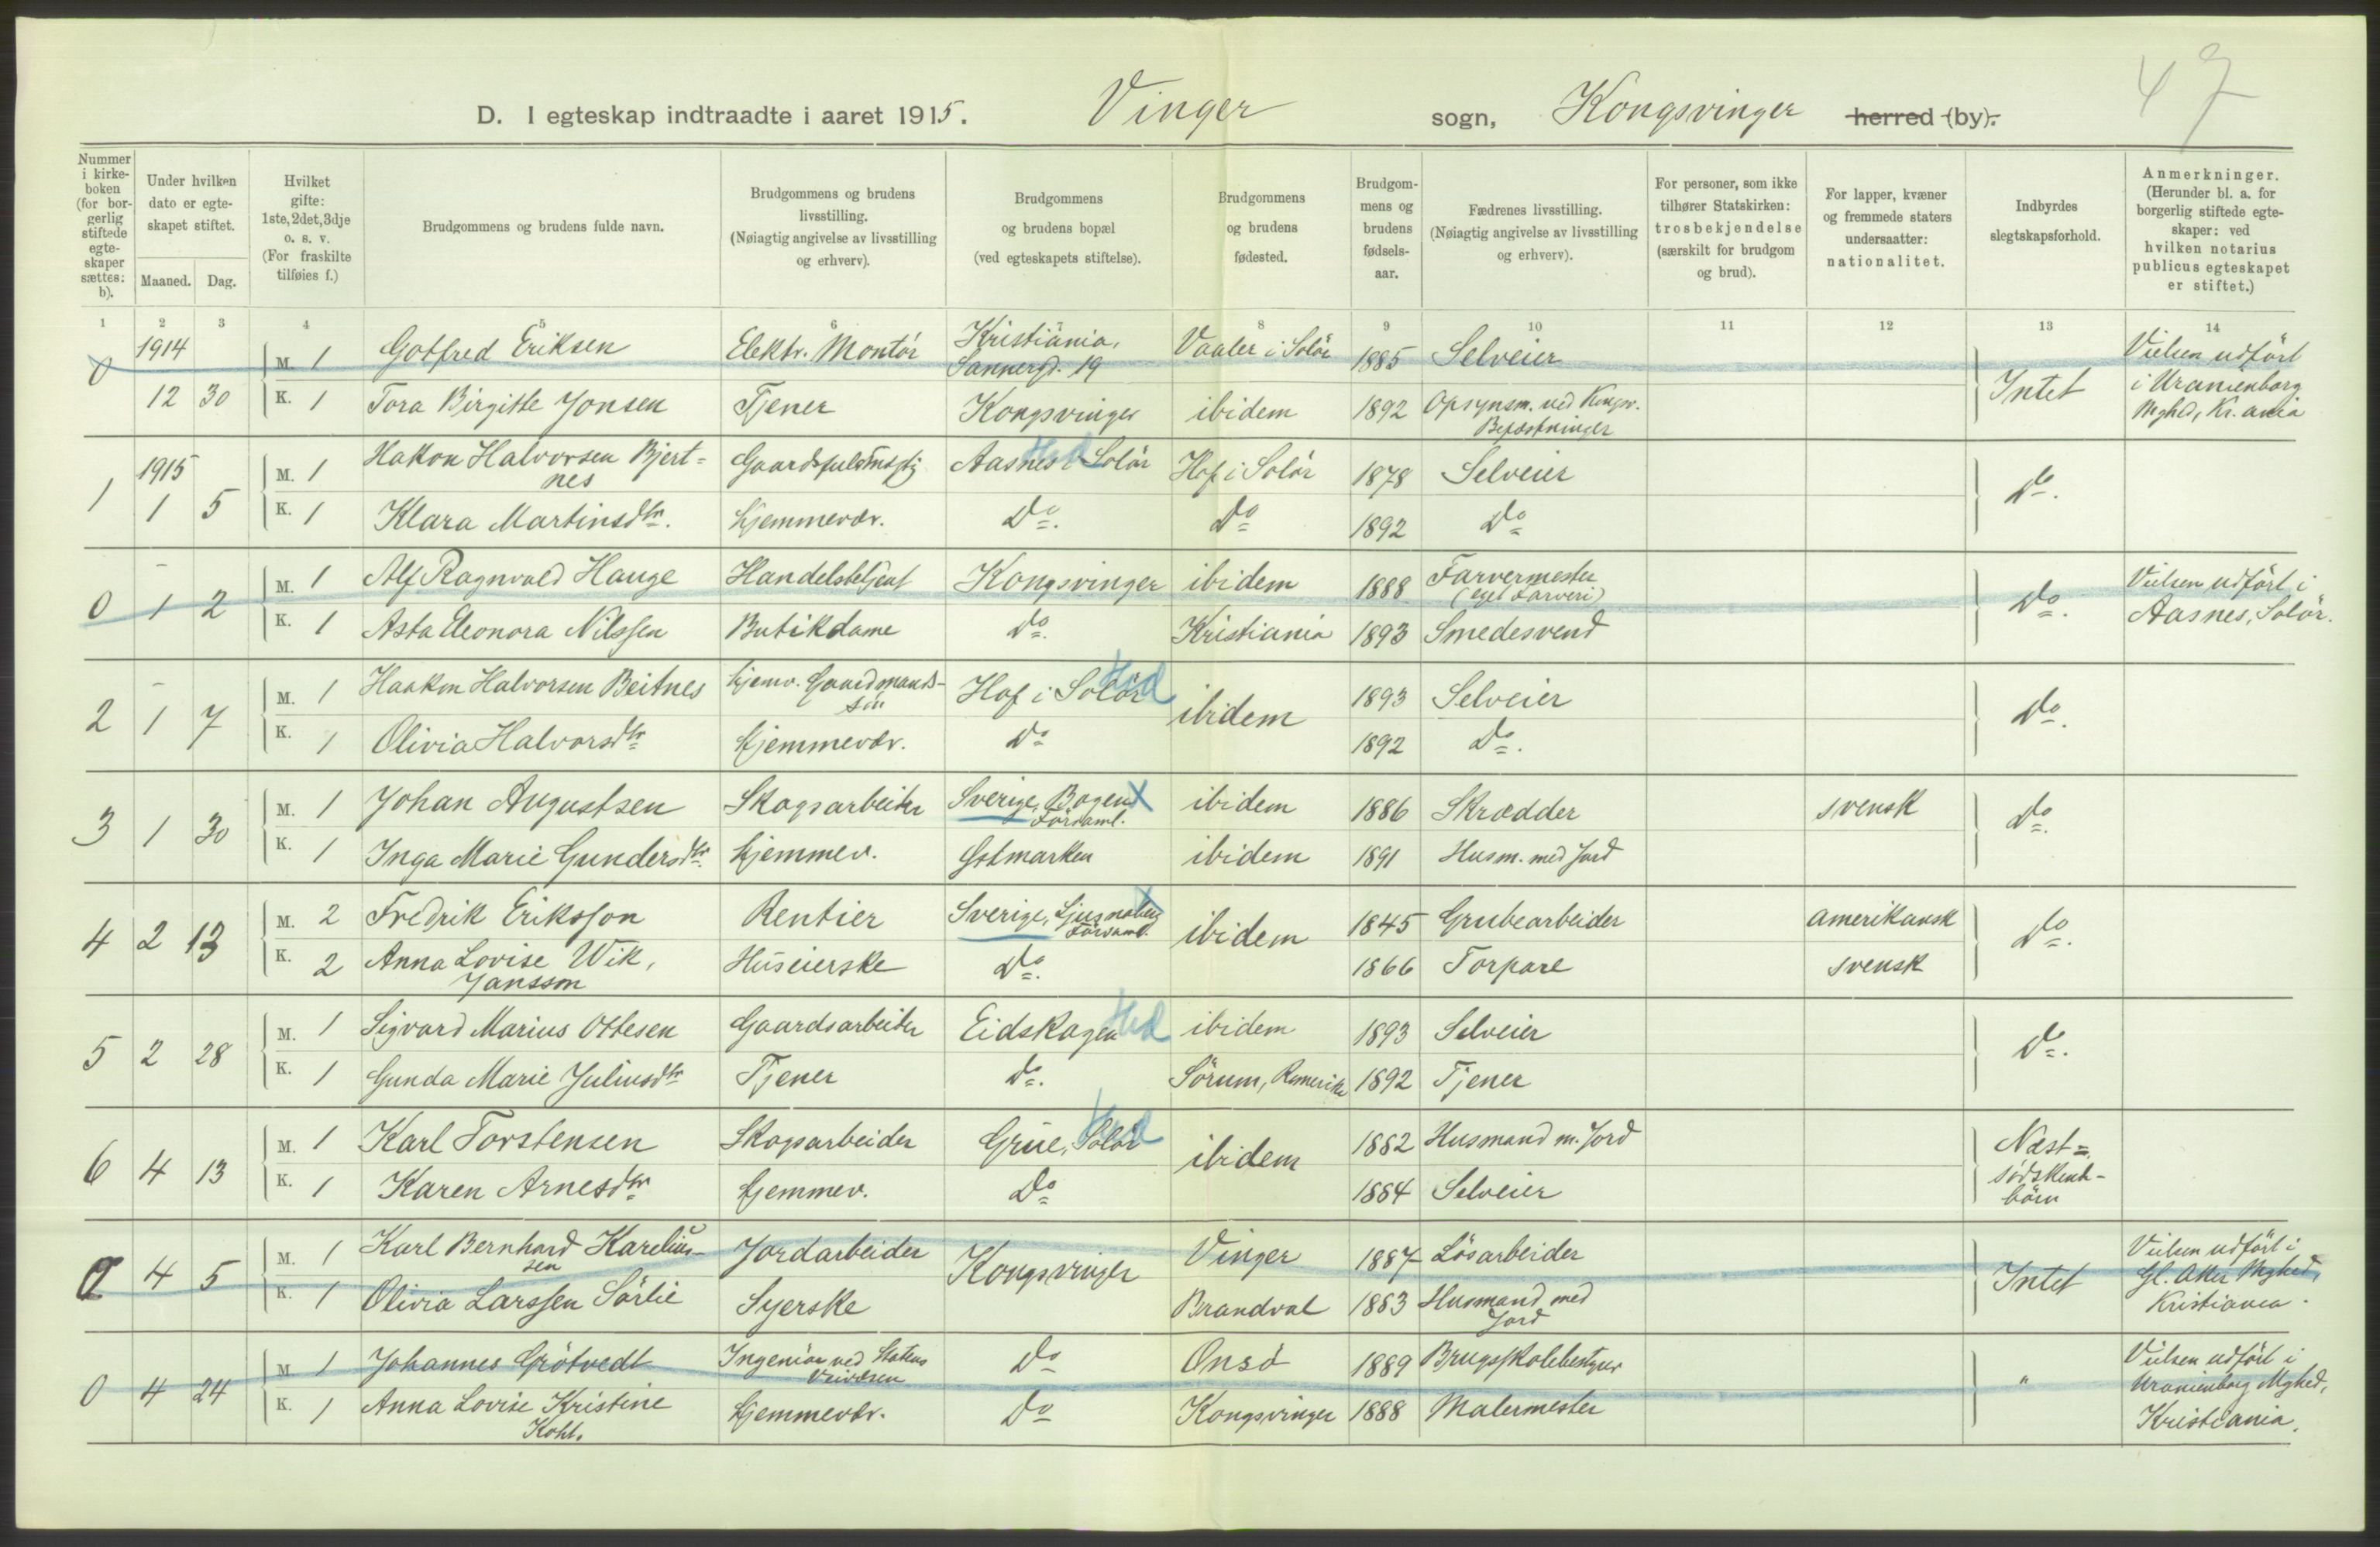 47
D. I egteskap indtraadte i aaret 1915. Vinger sogn, Kongsvinger herred (by).
Nummer i kirkeboken (for borgerlig stiftede egteskaper sættes: b).
Under hvilken dato er egteskapet stiftet.
Maaned. Dag.
Hvilket gifte: 1ste, 2det, 3dje o. s. v. (For fraskilte tilføies f.)
Brudgommens og brudens fulde navn.
Brudgommens og brudens livsstilling. (Nøiagtig angivelse av livsstilling og erhverv).
Brudgommens og brudens bopæl (ved egteskapets stiftelse).
Brudgommens og brudens fødested.
Brudgommens og brudens fødselsaar.
Fædrenes livsstilling. (Nøiagtig angivelse av livsstilling og erhverv).
For personer, som ikke tilhører Statskirken: trosbekjendelse (særskilt for brudgom og brud).
For lapper, kvæner og fremmede staters undersaatter: nationalitet.
Indbyrdes slegtskapsforhold.
Anmerkninger. (Herunder bl. a. for borgerlig stiftede egteskaper: ved hvilken notarius publicus egteskapet er stiftet.)
1 2 3 4 5 6 8 9 10 11 12 13 14
0 1914 12 30 M. 1 Gotfred Eriksen Elektr. Montör Kristiania, Sannergd. 19 Vaaler i Solör 1885 Selveier Intet Vielsen udfört i Uranienborg Mghd, Kr.ania
K. 1 Tora Birgitte Jonsen Tjener Kongsvinger ibidem 1892 Opsynsm. ved Kongsv. Befæstninger
1 1915 1 5 M. 1 Hakon Halvorsen Bjert=nes Gaardsfuldmægtig Aasnes i Solör Hed Hof i Solör 1878 Selveier Do.
K. 1 Klara Martinsdtr. Hjemmevær. Do. Do 1892 Do
0 1 2 M. 1 Alf Ragnvald Hauge Handelsbetjent Kongsvinger ibidem 1888 Farvermester (eget Farveri) Do. Vielsen udfört i Aasnes, Solör.
K. 1 Asta Eleonora Nilssen Butikdame Do. Kristiania 1893 Smedesvend
2 1 7 M. 1 Haakon Halvorsen Beitnes Hjemv. Gaardmands-sön Hof i Solör Hed ibidem 1893 Selveier Do.
K. 1 Olivia Halvorsdtr Hjemmevær. Do 1892 Do.
3 1 30 M. 1 Johan Augustsen Skogsarbeider Sverige, Bogen Församl. X ibidem 1886 Skrædder svensk Do.
K. 1 Inga Marie Gundersdtr. Hjemmev. Östmarken ibidem 1891 Husm. med Jord
4 2 13 M. 2 Fredrik Eriksson Rentier Sverige, Ljusnaberg Församl. X ibidem 1845 Grubearbeider amerikansk Do.
K. 2 Anna Lovise Wik, Jansson Huseierske Do. 1866 Torpare svensk
5 2 28 M. 1 Sigvard Marius Ottesen Gaardsarbeider Eidskogen Hed ibidem 1893 Selveier Do.
K. 1 Gunda Marie Juliusdtr Tjener Do. Sörum, Romerike 1892 Tjener
6 4 13 M. 1 Karl Torstensen Skogsarbeider Grue, Solör Hed ibidem 1882 Husmand m. Jord Næst=södskend-börn
K. 1 Karen Arnesdtr Hjemmev. Do 1884 Selveier
0 4 5 M. 1 Karl Bernhard Karelius-sen Jordarbeider Kongsvinger Vinger 1887 Lösarbeider Intet Vielsen udfört i Gl. Aker Mghed, Kristiania.
K. 1 Olivia Larssen Sörlie Syerske Brandval 1883 Husmand med Jord
0 4 24 M. 1 Johannes Grötvedt Ingeniör ved Statens Veivæsen Do Onsö 1889 Brugsskolebestyrer " Vielsen udfört i Uranienborg Mghed, Kristiania.
K. 1 Anna Lovise Kristine Koht. Hjemmevær. Do Kongsvinger 1888 Malermester